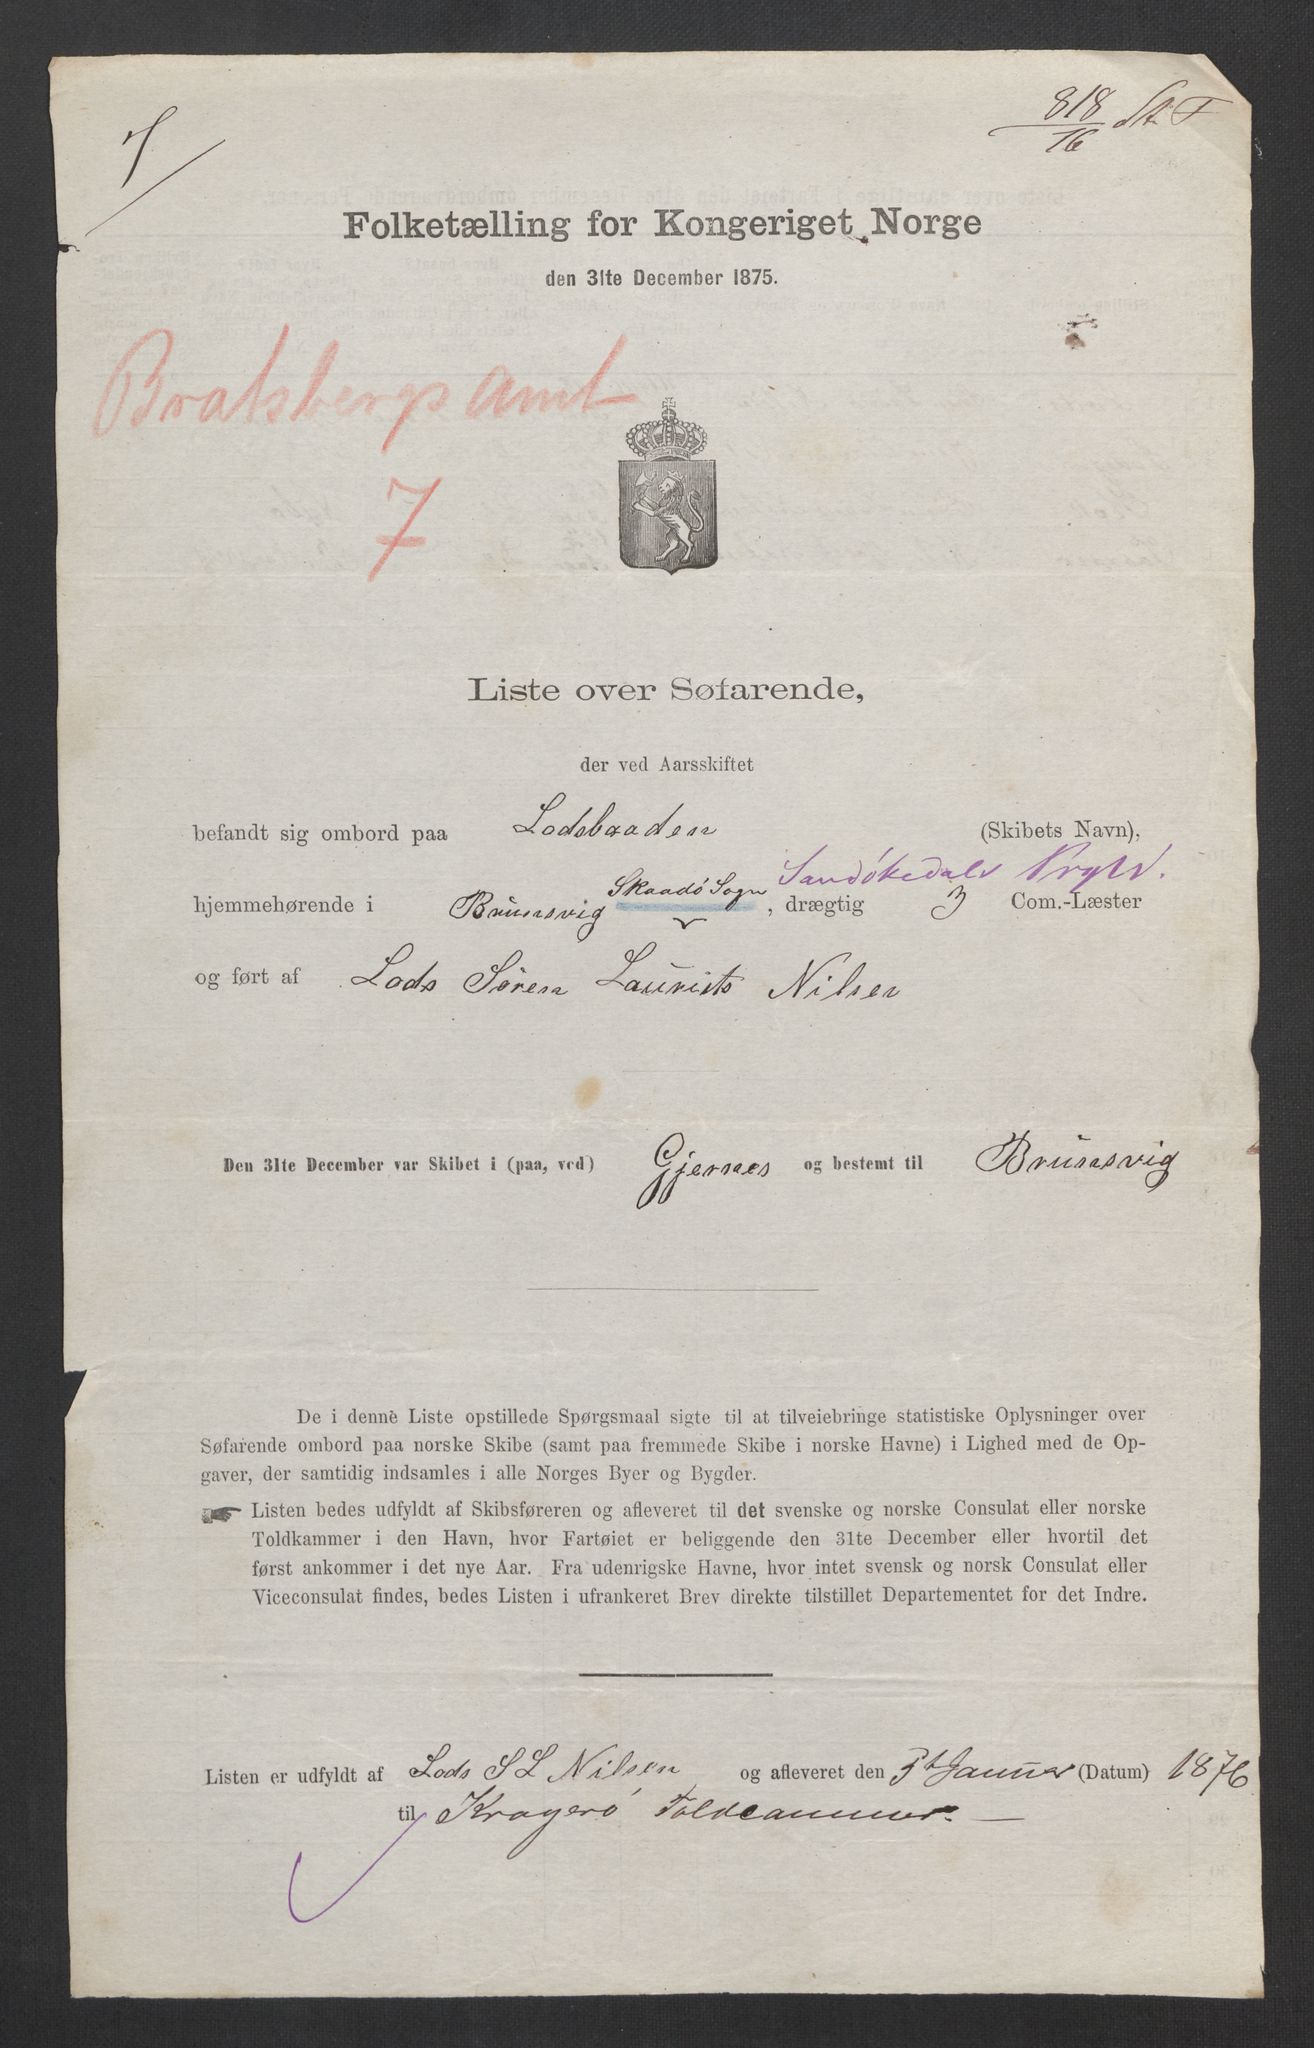 7
818/76 St. T
Folketælling for Kongeriget Norge
den 31te December 1875.
Bratsbergs Amt
7
Liste over Søfarende,
der ved Aarsskiftet
befandt sig ombord paa Lodsbaaden (Skibets Navn),
Sandökedals Prgld.
hjemmehørende i Brunsvig Skaadö Sogn, drægtig 3 Com.-Læster
og ført af Lods Sören Laurits Nilsen
Den 31te December var Skibet i (paa, ved) Gjernes og bestemt til Brunsvig
De i denne Liste opstillede Spørgsmaal sigte til at tilveiebringe statistiske Oplysninger over
Søfarende ombord paa norske Skibe (samt paa fremmede Skibe i norske Havne) i Lighed med de Op-
gaver, der samtidig indsamles i alle Norges Byer og Bygder.
Listen bedes udfyldt af Skibsføreren og afleveret til det svenske og norske Consulat eller norske
Toldkammer i den Havn, hvor Fartøiet er beliggende den 31te December eller hvortil det
først ankommer i det nye Aar. Fra udenrigske Havne, hvor intet svensk og norsk Consulat eller
Viceconsulat findes, bedes Listen i ufrankeret Brev direkte tilstillet Departementet for det Indre.
Listen er udfyldt af Lods S L Nilsen og afleveret den Januar (Datum) 1876
til Kragerö Toldcammer.